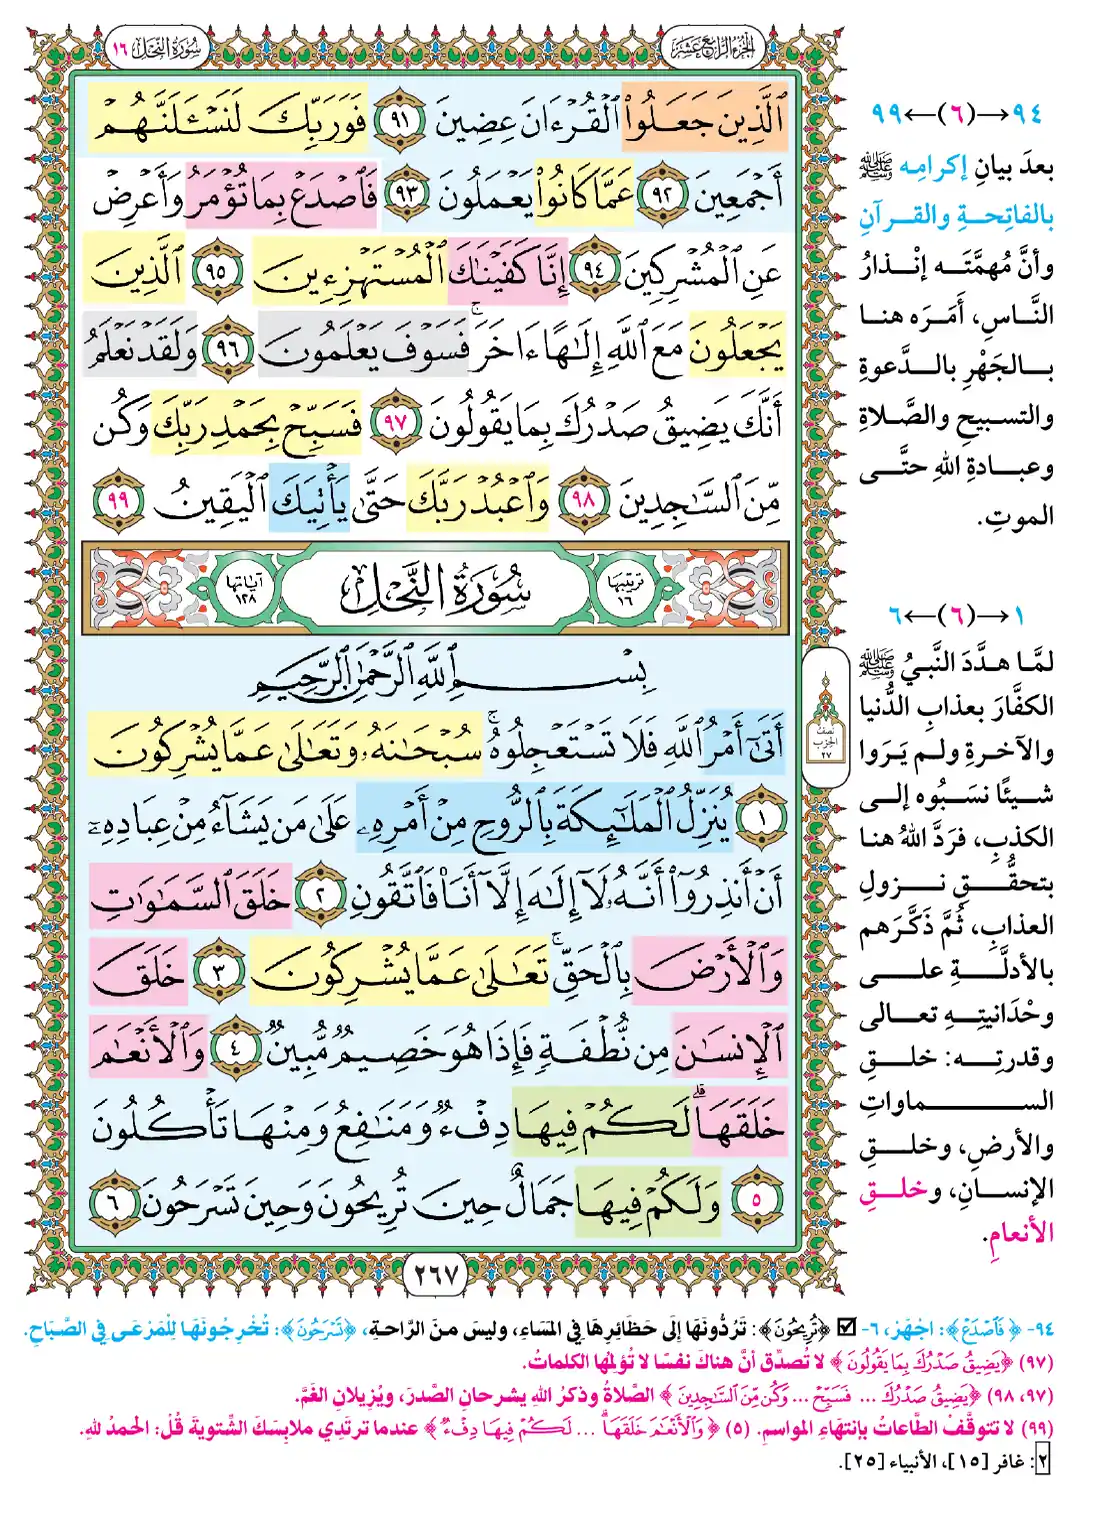 الجزء الرابع عشر
سورة النحل ١٦
ٱلَّذِينَ جَعَلُوا۟ ٱلْقُرْءَانَ عِضِينَ ٩١ فَوَرَبِّكَ لَنَسْـَٔلَنَّهُمْ
أَجْمَعِينَ ٩٢ عَمَّا كَانُوا۟ يَعْمَلُونَ ٩٣ فَٱصْدَعْ بِمَا تُؤْمَرُ وَأَعْرِضْ
عَنِ ٱلْمُشْرِكِينَ ٩٤ إِنَّا كَفَيْنَـٰكَ ٱلْمُسْتَهْزِءِينَ ٩٥ ٱلَّذِينَ
يَجْعَلُونَ مَعَ ٱللَّهِ إِلَـٰهًا ءَاخَرَ ۚ فَسَوْفَ يَعْلَمُونَ ٩٦ وَلَقَدْ نَعْلَمُ
أَنَّكَ يَضِيقُ صَدْرُكَ بِمَا يَقُولُونَ ٩٧ فَسَبِّحْ بِحَمْدِ رَبِّكَ وَكُن
مِّنَ ٱلسَّـٰجِدِينَ ٩٨ وَٱعْبُدْ رَبَّكَ حَتَّىٰ يَأْتِيَكَ ٱلْيَقِينُ ٩٩
ترتيبها ١٦
سُورَةُ النَّحْلِ
آياتها ١٢٨
بِسْمِ ٱللَّهِ ٱلرَّحْمَـٰنِ ٱلرَّحِيمِ
أَتَىٰٓ أَمْرُ ٱللَّهِ فَلَا تَسْتَعْجِلُوهُ ۚ سُبْحَـٰنَهُۥ وَتَعَـٰلَىٰ عَمَّا يُشْرِكُونَ
١ يُنَزِّلُ ٱلْمَلَـٰٓئِكَةَ بِٱلرُّوحِ مِنْ أَمْرِهِۦ عَلَىٰ مَن يَشَآءُ مِنْ عِبَادِهِۦٓ
أَنْ أَنذِرُوٓا۟ أَنَّهُۥ لَآ إِلَـٰهَ إِلَّآ أَنَا۠ فَٱتَّقُونِ ٢ خَلَقَ ٱلسَّمَـٰوَٰتِ
وَٱلْأَرْضَ بِٱلْحَقِّ ۚ تَعَـٰلَىٰ عَمَّا يُشْرِكُونَ ٣ خَلَقَ
ٱلْإِنسَـٰنَ مِن نُّطْفَةٍ فَإِذَا هُوَ خَصِيمٌ مُّبِينٌ ٤ وَٱلْأَنْعَـٰمَ
خَلَقَهَا ۗ لَكُمْ فِيهَا دِفْءٌ وَمَنَـٰفِعُ وَمِنْهَا تَأْكُلُونَ
٥ وَلَكُمْ فِيهَا جَمَالٌ حِينَ تُرِيحُونَ وَحِينَ تَسْرَحُونَ ٦
٢٦٧
٩٤→(٦)←٩٩
بعدَ بيانِ إكرامِه ﷺ
بالفاتِحةِ والقرآنِ
وأنَّ مُهمَّتَه إنذارُ
النَّاسِ، أَمَرَه هنا
بالجَهْرِ بالدَّعوةِ
والتسبيحِ والصَّلاةِ
وعبادةِ اللهِ حتَّى
الموتِ.
١→(٦)←٦
لمَّا هدَّدَ النَّبيُ ﷺ
الكفَّارَ بعذابِ الدُّنيا
والآخرةِ ولم يَرَوا
شيئًا نسَبُوه إلى
الكذبِ، فرَدَّ اللهُ هنا
بتحقُّقِ نزولِ
العذابِ، ثُمَّ ذَكَّرَهم
بالأدلَّةِ على
وحْدَانيتِهِ تعالى
وقدرتِه: خلقِ
السماواتِ
والأرضِ، وخلقِ
الإنسانِ، وخلقِ
الأنعامِ.
نصف
الحزب
٢٧
٩٤- ﴿فَٱصْدَعْ﴾: اجْهَرْ، ٦- ☑ ﴿تُرِيحُونَ﴾: تَرُدُّونَهَا إِلَى حَظَائِرِهَا فِي المَسَاءِ، وليسَ منَ الرَّاحةِ، ﴿تَسْرَحُونَ﴾: تُخْرِجُونَهَا لِلْمَرْعَى فِي الصَّبَاحِ.
(٩٧) ﴿يَضِيقُ صَدْرُكَ بِمَا يَقُولُونَ﴾ لا تُصدِّق أنَّ هناكَ نفسًا لا تُؤلِمُها الكلماتُ.
(٩٧، ٩٨) ﴿يَضِيقُ صَدْرُكَ ... فَسَبِّحْ ... وَكُن مِّنَ ٱلسَّـٰجِدِينَ﴾ الصَّلاةُ وذكرُ اللهِ يشرحانِ الصَّدرَ، ويُزيلانِ الغَمَّ.
(٩٩) لا تتوقَّفْ الطَّاعاتُ بانتهاءِ المواسمِ. (٥) ﴿وَٱلْأَنْعَـٰمَ خَلَقَهَا ۗ ... لَكُمْ فِيهَا دِفْءٌ﴾ عندما ترتدِي ملابِسَكَ الشَّتويةَ قُلْ: الحمدُ للهِ.
٢: غافر [١٥]، الأنبياء [٢٥].